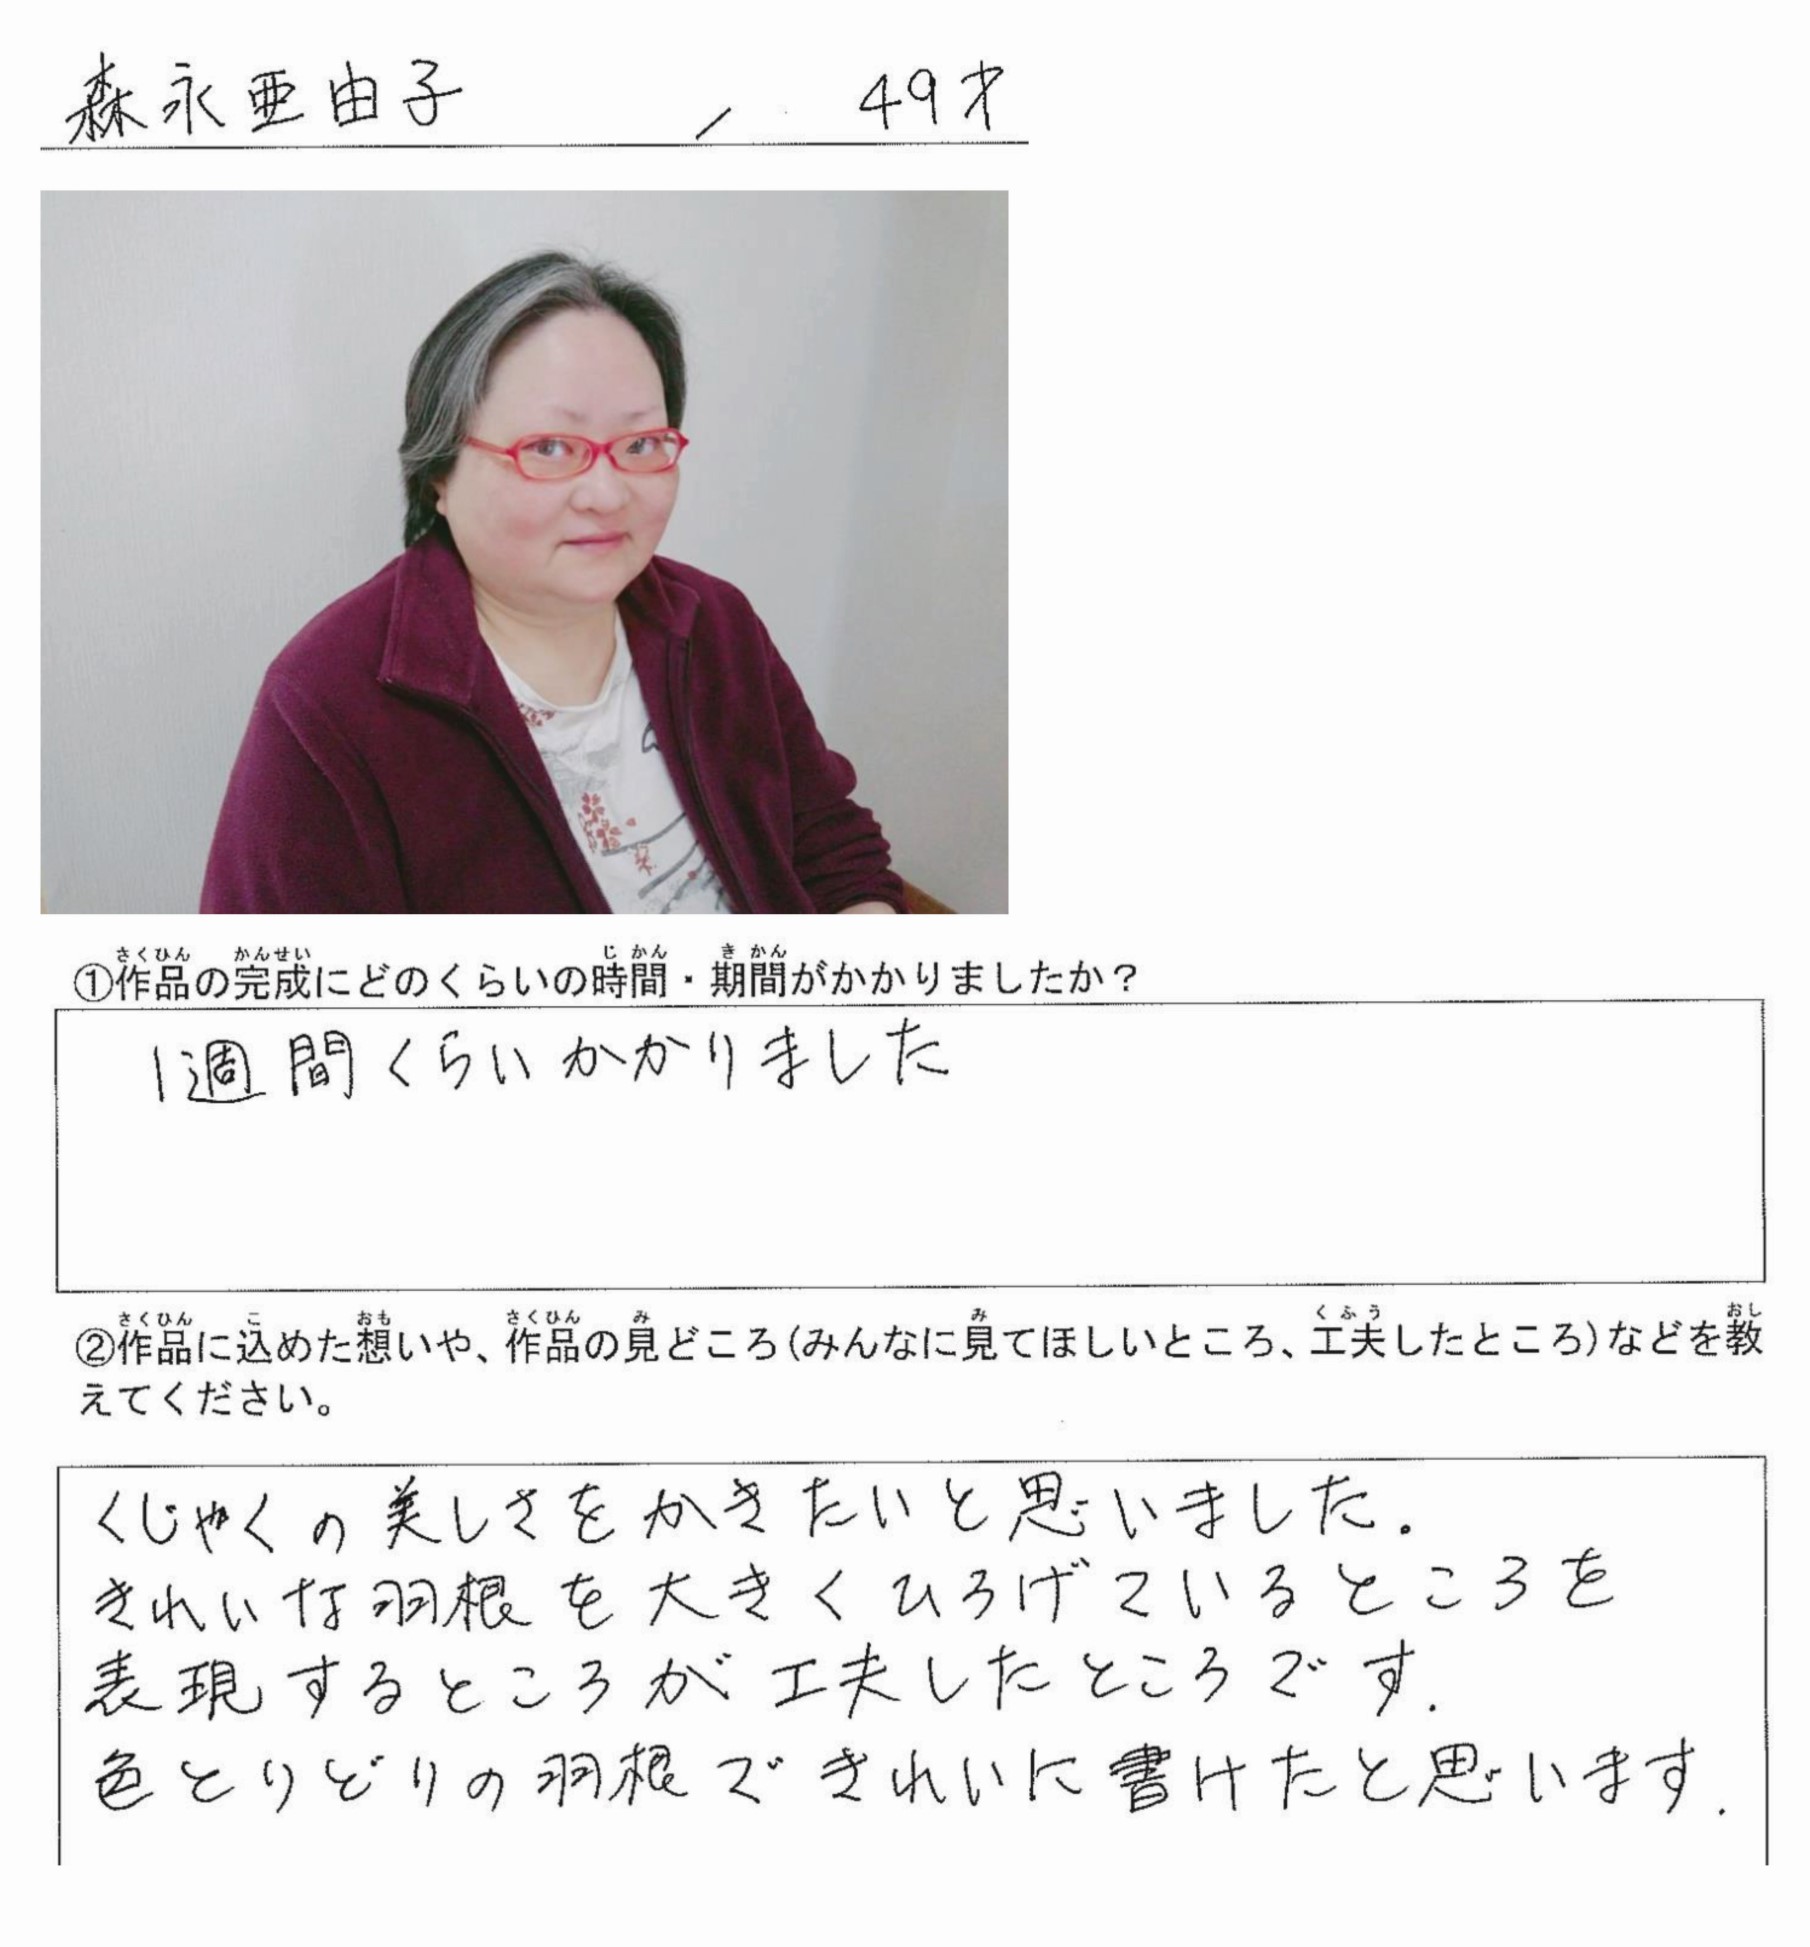 森永亜由子 / 49才
①作品の完成にどのくらいの時間・期間がかかりましたか？
1週間くらいかかりました
②作品に込めた想いや、作品の見どころ(みんなに見てほしいところ、工夫したところ)などを教
えてください。
くじゃくの美しさをかきたいと思いました。
きれいな羽根を大きくひろげているところを
表現するところが工夫したところです.
色とりどりの羽根できれいに書けたと思います.